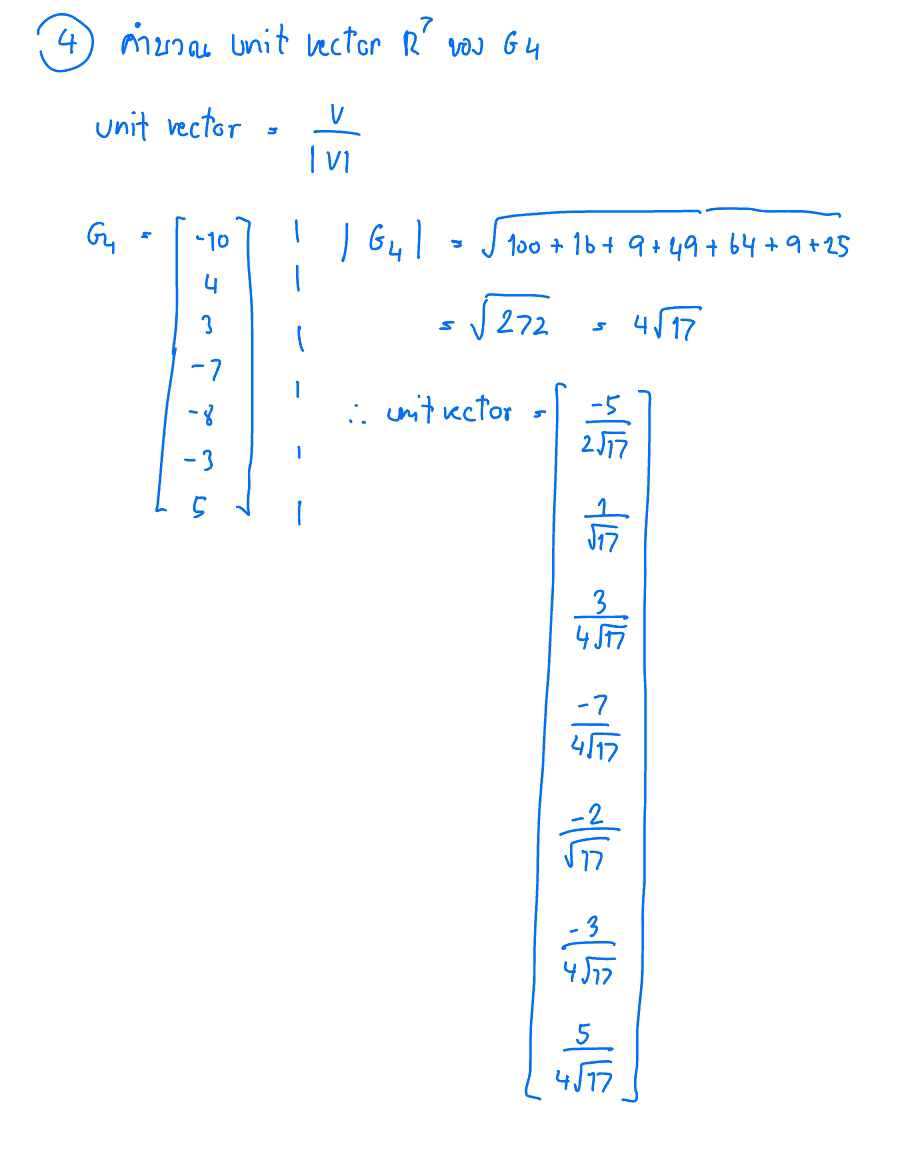 4 คำนวณ unit vector R⁷ ของ G4
unit vector = V / |V|
G₄ = [ -10 4 3 -7 -8 -3 5 ]
|G₄| = √100 + 16 + 9 + 49 + 64 + 9 + 25
= √272 = 4√17
∴ unit vector = [ -5/2√17
1/√17
3/4√17
-7/4√17
-2/√17
-3/4√17
5/4√17 ]